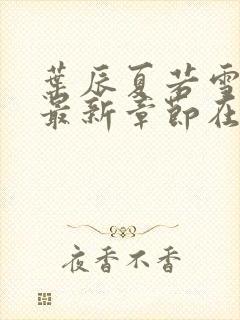 葉辰夏若雪
最新章節在
夜香不香